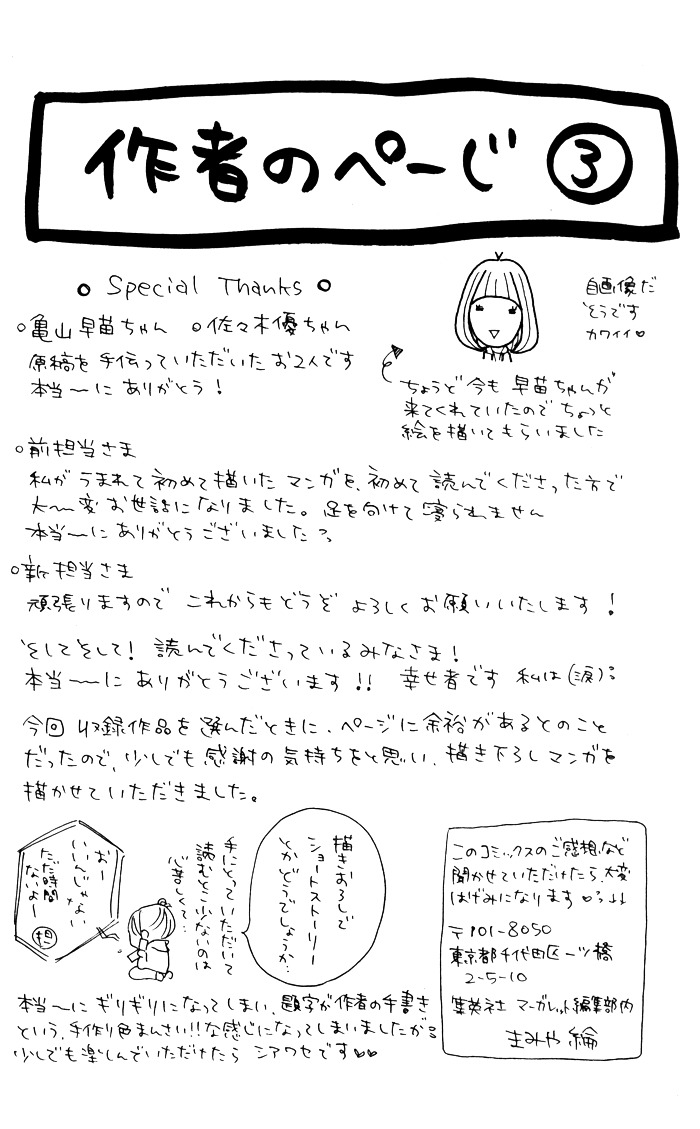 作者のペーじ ③
○ Special Thanks ○
○亀山早苗ちゃん ○佐々木優ちゃん
原稿を手伝っていただいたお2人です
本当〜にありがとう!
自画像だ
そうです
カワイイ♡
ちょうど今も早苗ちゃんが
来てくれていたのでちょっと
絵を描いてもらいました
○前担当さま
私がうまれて初めて描いたマンガを、初めて読んでくださった方で
大〜変お世話になりました。足を向けて寝られません
本当〜にありがとうございました
○新担当さま
頑張りますので これからもどうぞ よろしくお願いいたします!
そしてそして! 読んでくださっているみなさま!
本当〜にありがとうございます!! 幸せ者です 私は(涙)
今回 収録作品を選んだときに、ページに余裕があるとのこと
だったので、少しでも感謝の気持ちをと思い、描き下ろしマンガを
描かせていただきました。
描きおろしで
ショートストーリー
とかどうでしょうか…
手にとっていただいて
読むとこ少ないのは
心苦しくて…
おー
いいんじゃない
ただ時間
ないよー
担
本当〜にギリギリになってしまい、題字が作者の手書き
という、手作り色まんさい!!な感じになってしまいましたが
少しでも楽しんでいただけたら シアワセです♡♡
このコミックスのご感想など
聞かせていただけたら、大変
はげみになります♡
〒101-8050
東京都千代田区一ツ橋
2-5-10
集英社 マーガレット編集部内
まみや 綸